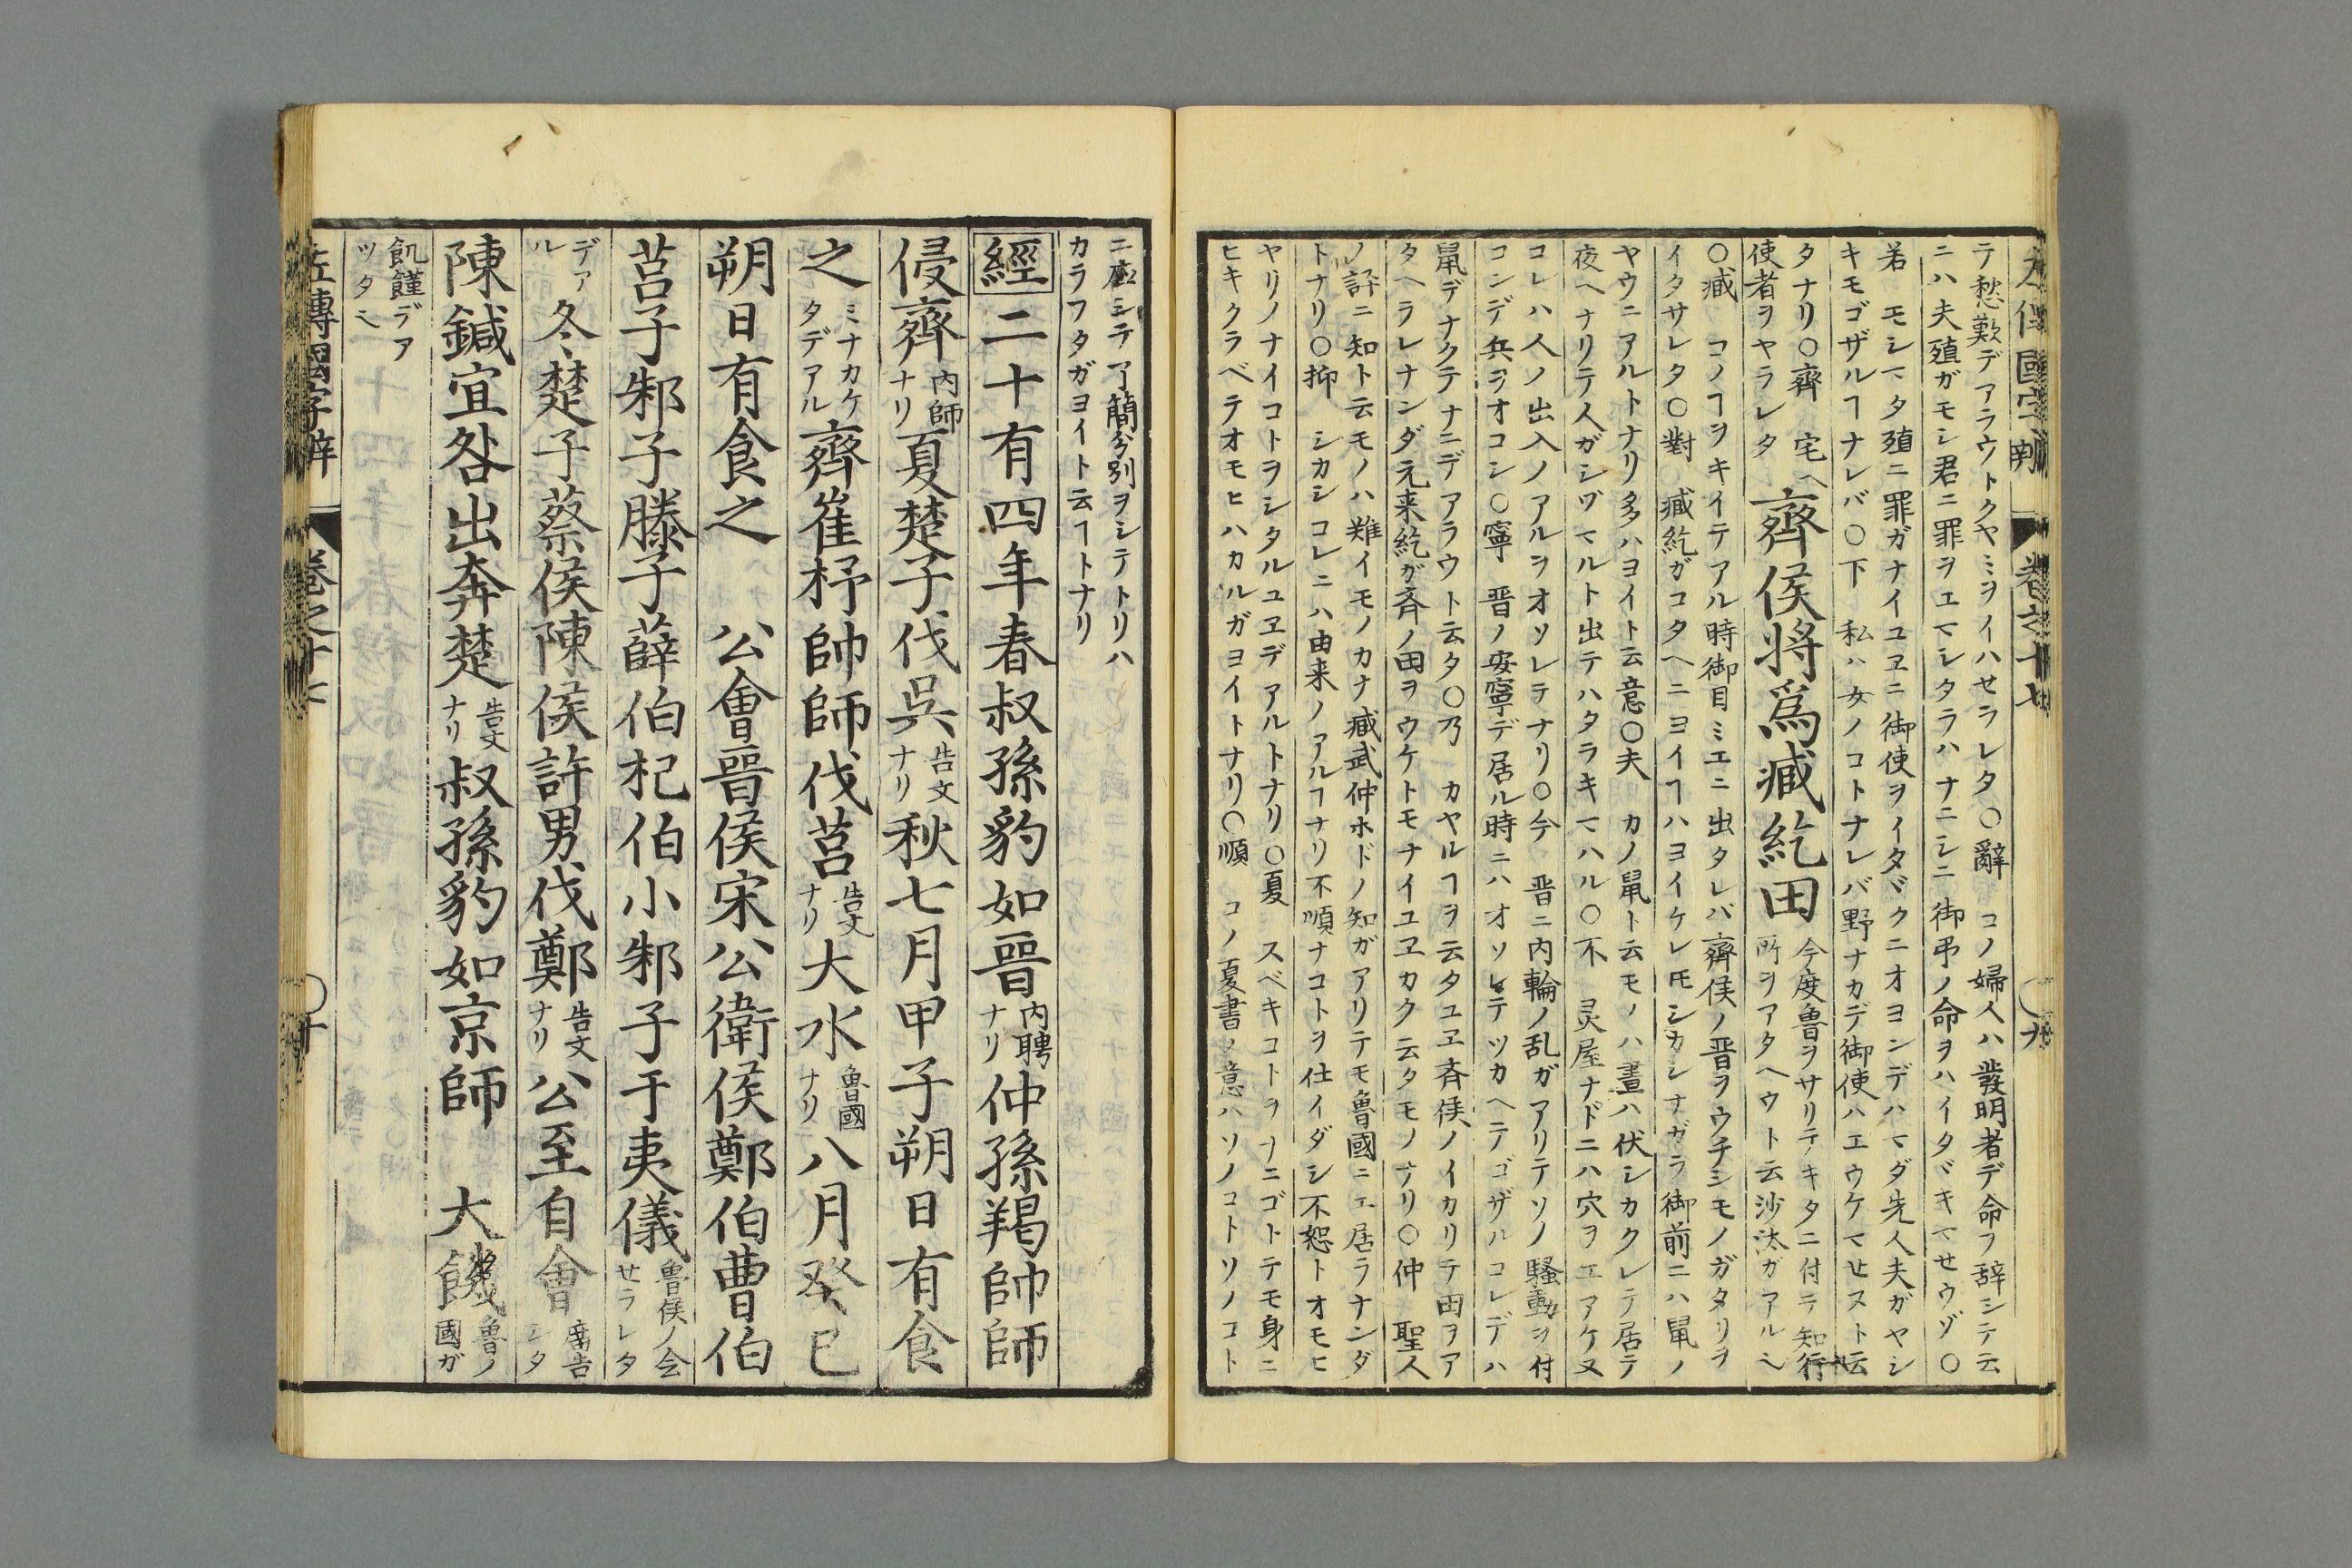 左傳國字辨 巻之十七 〇九
テ愁歎デアラウトクヤミヲイハせラレタ〇辭 コノ婦人ハ發明者デ命ヲ辞シテ云
ニハ夫殖ガモシ君ニ罪ヲエマシタラハナニシニ御弔ノ命ヲハイタヾキマせウゾ〇
若 モシマタ殖ニ罪ガナイユヱニ御使ヲイタヾクニオヨンデハマダ先人夫ガヤシ
キモゴザルヿナレバ〇下 私ハ女ノコトナレバ野ナカデ御使ハエウケマせヌト云
タナリ〇齊 宅ヘ
使者ヲヤラレタ
齊侯将爲臧紇田
今度魯ヲサリテキタニ付テ知行
所ヲアタヘウト云沙汰ガアルシ
〇臧 コノヿヲキイテアル時御目ミエニ出タレバ齊侯ノ晋ヲウチシモノガタリヲ
イタサレタ〇對 臧紇ガコタヘニヨイヿハヨイケレ𪜈シカシナガラ御前ニハ鼠ノ
ヤウニアルトナリ多ハヨイト云意〇夫 カノ鼠ト云モノハ晝ハ伏シカクレテ居テ
夜ヘナリテ人ガシヅマルト出テハタラキマハル〇不 灵屋ナドニハ穴ヲエアケヌ
コレハ人ノ出入ノアルヲオソレテナリ〇今 晋ニ内輪ノ乱ガアリテソノ騒動ヲ付
コンデ兵ヲオコシ〇寧 晋ノ安寧デ居ル時ニハオソレテツカヘテゴザルコレデハ
鼠デナクテナニデアラウト云タ〇乃 カヤルヿヲ云タユヱ斉侯ノイカリテ田ヲア
タヘラレナンダ元来紇ガ斉ノ田ヲウケトモナイユヱカク云タモノナリ〇仲 聖人
ノ評ニ知ト云モノハ難イモノカナ臧武仲ホドノ知ガアリテモ魯國ニエ居ラナンダ
トナリ〇抑 シカシコレニハ由来ノアルヿナリ不順ナコトヲ仕イダシ不恕トオモヒ
ヤリノナイコトヲシタルユヱデアルトナリ〇夏 スベキコトヲナニゴトテモ身ニ
ヒキクラベテオモヒハカルガヨイトナリ〇順 コノ夏書ノ意ハソノコトソノコト
ニ應シテ了簡分別ヲシテトリハ
カラフタガヨイト云ヿトナリ
經二十有四年春叔孫豹如晉内聘ナリ仲孫羯帥師
侵齊内師ナリ夏楚子伐呉告文ナリ秋七月甲子朔日有食
之ミナカケタデアル齊崔杼帥師伐莒告文ナリ大水魯國ナリ八月癸巳
朔日有食之 公會晉侯宋公衛侯鄭伯曹伯
莒子邾子滕子薛伯杞伯小邾子于夷儀魯侯ノ会せラレタ
デアル冬楚子蔡侯陳侯許男伐鄭告文ナリ公至自會席告シタ
陳鍼宜咎出奔楚告文ナリ叔孫豹如京師 大饑魯ノ國ガ
飢饉デア
ツタシ
左傳國字辨 巻之十七 〇十